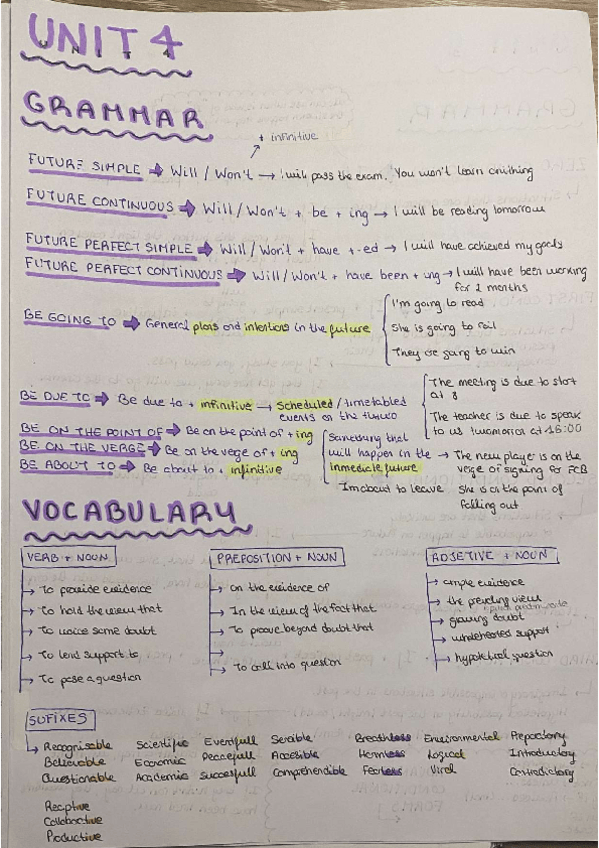 UNIT 4
GRAMMAR
+ infinitive
FUTURE SIMPLE → Will / Won't → I will pass the exam. You won't learn anything
FUTURE CONTINUOUS → Will / Won't + be + ing → I will be reading tomorrow
FUTURE PERFECT SIMPLE → Will / Won't + have + -ed → I will have achieved my goals
FUTURE PERFECT CONTINUOUS → Will / Won't + have been + ing → I will have been working
for 2 months
BE GOING TO → General plans and intentions in the future
I'm going to read
She is going to rail
They're going to win
BE DUE TO → Be due to + infinitive → Scheduled / timetabled
events on the future
The meeting is due to start
at 8
The teacher is due to speak
to us tomorrow at 16:00
BE ON THE POINT OF → Be on the point of + ing
BE ON THE VERGE → Be on the vege of + ing
BE ABOUT TO → Be about to + infinitive
Something that
will happen in the
inmediate future
→ The new player is on the
verge of signing for FCB
I'm about to leave
She is on the point of
falling out
VOCABULARY
VERB + NOUN
→ To provide evidence
→ To hold the view that
→ To voice some doubt
→ To lend support to
→ To pose a question
PREPOSITION + NOUN
→ On the evidence of
→ In the view of the fact that
→ To prove beyond doubt that
→
→ To call into question
ADJETIVE + NOUN
→ ample evidence
→ the prevailing view
→ growing doubt
→ wholehearted support
→ hypotetical question
SUFIXES
→ Recognisable Scientific Eventfull Sensible Breathless Environmental Repository
Believable Economic Peacefull Accesible Harmless Logical Introductory
Questionable Academic Succesfull Comprehendible Fearless Viral Contradictory
Receptive
Collaborative
Productive